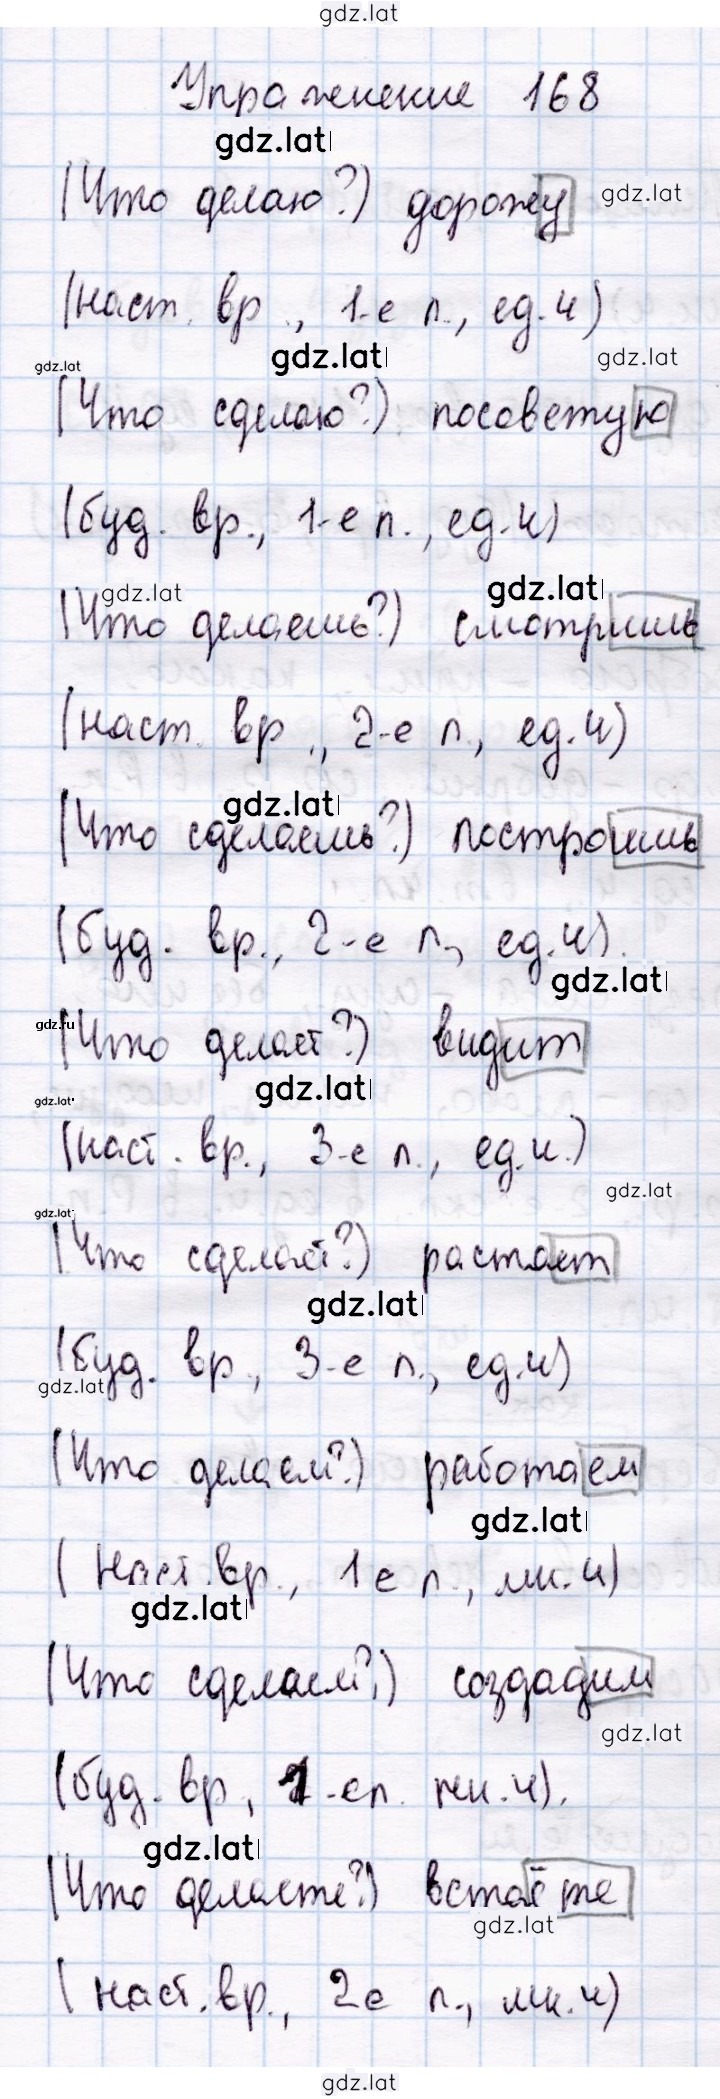 gdz.lat
Упражнение 168
gdz.lat
(Что делаю?) дорожу gdz.lat
(наст. вр., 1-е л., ед.ч)
gdz.lat gdz.lat gdz.lat
(Что сделаю?) посоветую
(буд. вр., 1-е л., ед.ч)
gdz.lat gdz.lat
(Что делаешь?) смотришь
(наст. вр., 2-е л., ед.ч)
gdz.lat
(Что сделаешь?) построишь
(буд. вр., 2-е л., ед.ч).
gdz.lat
gdz.ru
(Что делает?) видит
gdz.lat
gdz.lat
(наст. вр., 3-е л., ед.ч.)
gdz.lat
gdz.lat
(Что сделает?) растает
gdz.lat
(буд. вр., 3-е л., ед.ч)
gdz.lat
(Что делаем?) работаем
gdz.lat
(наст. вр., 1 е л., мн.ч)
gdz.lat
(Что сделаем?) создадим
gdz.lat
(буд. вр, 1-е л. мн.ч).
gdz.lat
(Что делаете?) встаёте
gdz.lat
(наст. вр., 2 е л., мн.ч)
gdz.lat